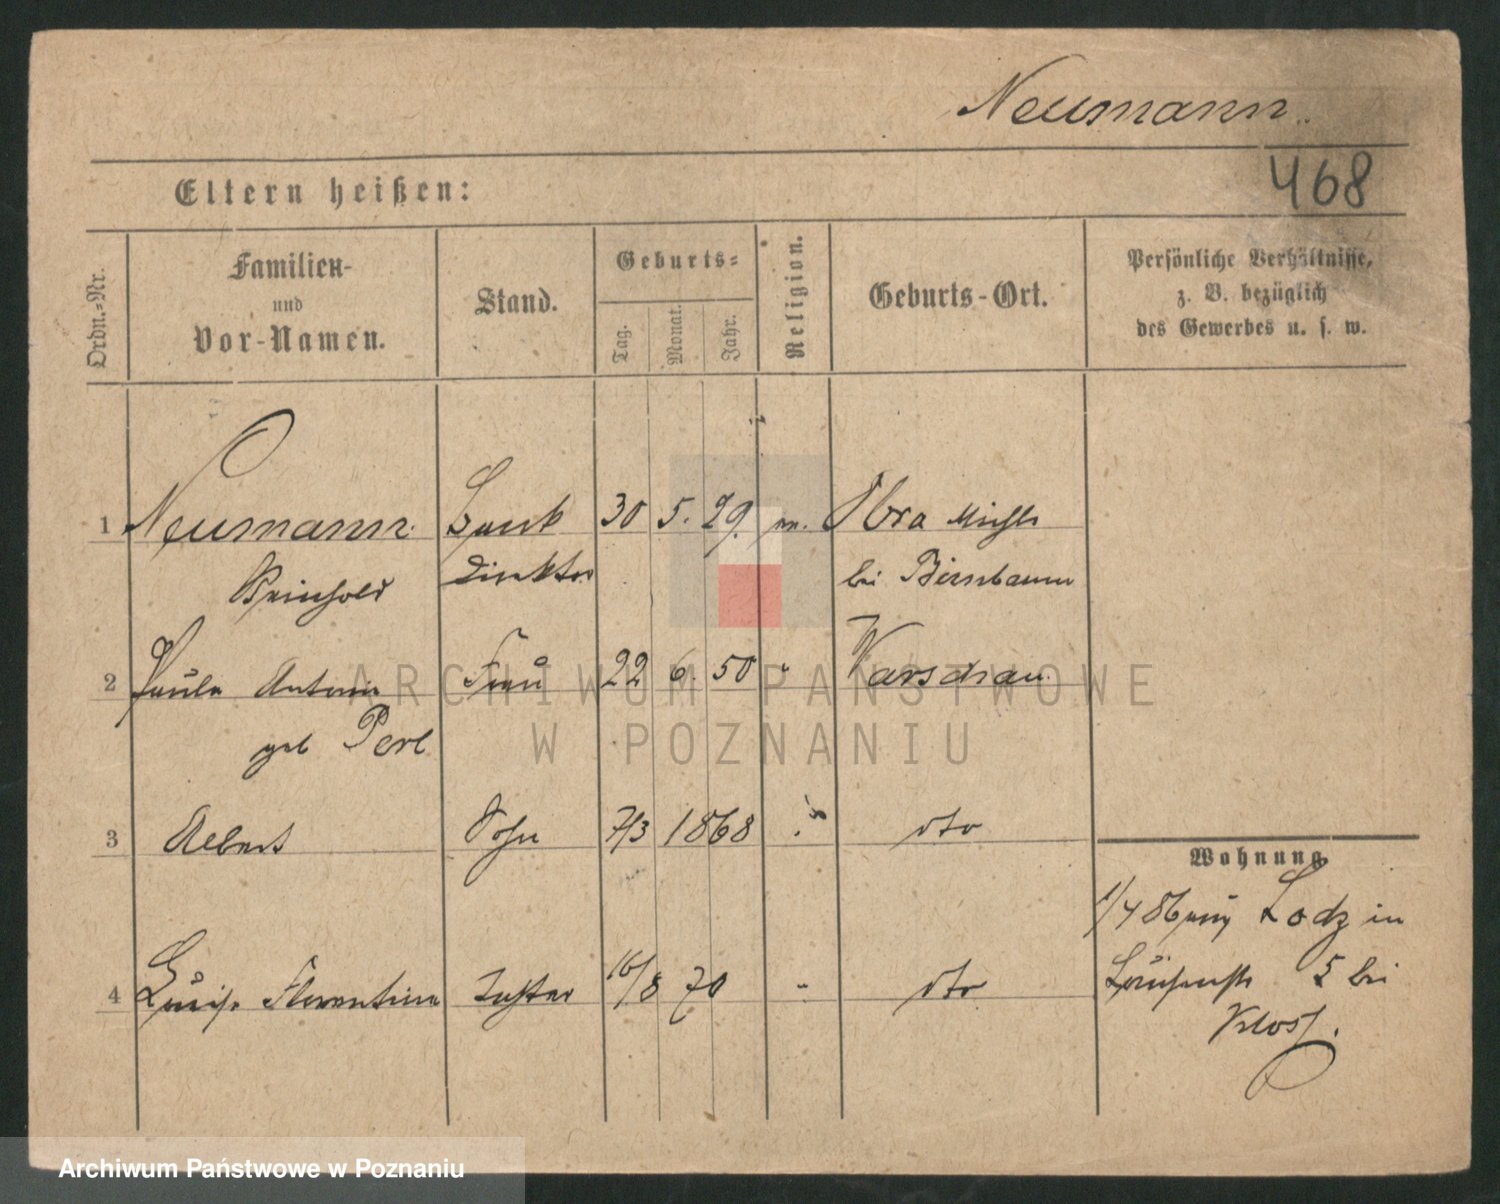 Neumann
468
Eltern heißen:
Ordn.-Nr.
Familien-
und
Vor-Namen.
Stand.
Geburts-
Tag.
Monat.
Jahr.
Religion.
Geburts-Ort.
Persönliche Verhältnisse,
z. B. bezüglich
des Gewerbes u. s. w.
1 Neumann Bank 30 5. 29. Obra
Reinhold Direktor bei Birnbaum
2 Paula Antonie Frau 22 6. 50 " Warschau
geb Perl
3 Albert Sohn 7/3 1868 dto
Wohnung
1/4 86 Lodz in
4 Luise Florentine Tochter 16/8 70 " dto
5 bei
ARCHIWUM PAŃSTWOWE
W POZNANIU
Archiwum Państwowe w Poznaniu